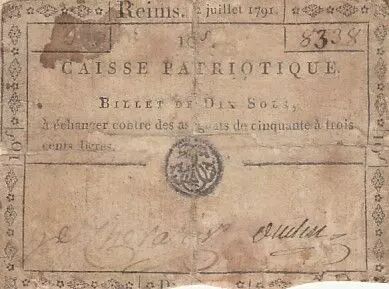 Reims. 2 juillet 1791.
10ˢ. 8338
CAISSE PATRIOTIQUE.
BILLET DE DIX SOLS,
à échanger contre des assignats de cinquante à trois
cents livres.